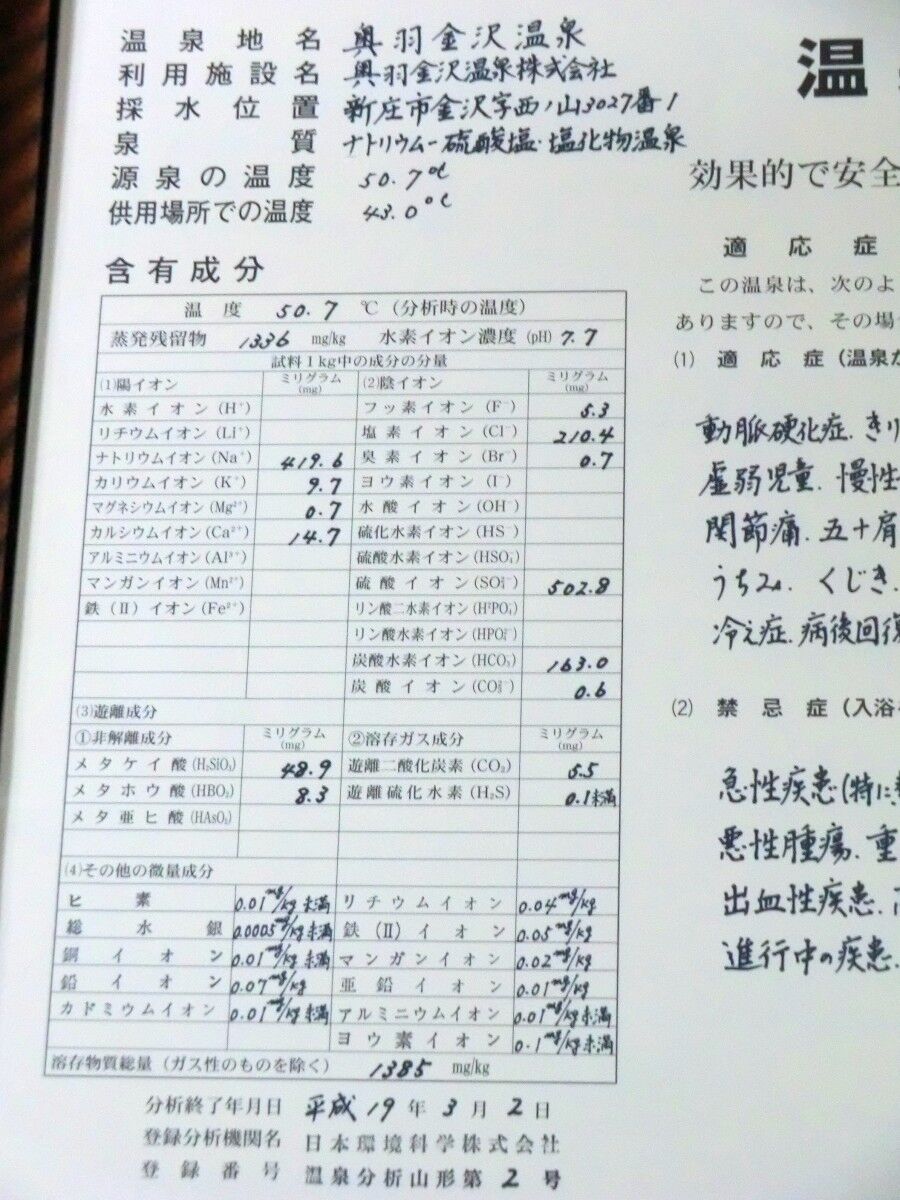 温泉地名 奥羽金沢温泉
利用施設名 奥羽金沢温泉株式会社
採水位置 新庄市金沢字西ノ山3027番1
泉質 ナトリウム-硫酸塩・塩化物温泉
源泉の温度 50.7℃
供用場所での温度 43.0℃
含有成分
温度 50.7 ℃(分析時の温度)
蒸発残留物 1336 mg/kg 水素イオン濃度(pH) 7.7
試料1kg中の成分の分量
(1)陽イオン ミリグラム(mg) (2)陰イオン ミリグラム(mg)
水素イオン(H⁺) フッ素イオン(F⁻) 5.3
リチウムイオン(Li⁺) 塩素イオン(Cl⁻) 210.4
ナトリウムイオン(Na⁺) 419.6 臭素イオン(Br⁻) 0.7
カリウムイオン(K⁺) 9.7 ヨウ素イオン(I⁻)
マグネシウムイオン(Mg²⁺) 0.7 水酸イオン(OH⁻)
カルシウムイオン(Ca²⁺) 14.7 硫化水素イオン(HS⁻)
アルミニウムイオン(Al³⁺) 硫酸水素イオン(HSO₄⁻)
マンガンイオン(Mn²⁺) 硫酸イオン(SO₄²⁻) 502.8
鉄(II)イオン(Fe²⁺) リン酸二水素イオン(H²PO₄⁻)
リン酸水素イオン(HPO₄²⁻)
炭酸水素イオン(HCO₃⁻) 163.0
炭酸イオン(CO₃²⁻) 0.6
(3)遊離成分
①非解離成分 ミリグラム(mg) ②溶存ガス成分 ミリグラム(mg)
メタケイ酸(H₂SiO₃) 48.9 遊離二酸化炭素(CO₂) 5.5
メタホウ酸(HBO₂) 8.3 遊離硫化水素(H₂S) 0.1未満
メタ亜ヒ酸(HAsO₂)
(4)その他の微量成分
ヒ素 0.01mg/kg未満 リチウムイオン 0.04mg/kg
総水銀 0.0005mg/kg未満 鉄(II)イオン 0.05mg/kg
銅イオン 0.01mg/kg未満 マンガンイオン 0.02mg/kg
鉛イオン 0.07mg/kg 亜鉛イオン 0.01mg/kg
カドミウムイオン 0.01mg/kg未満 アルミニウムイオン 0.01mg/kg未満
ヨウ素イオン 0.1mg/kg未満
溶存物質総量(ガス性のものを除く) 1385 mg/kg
分析終了年月日 平成19年3月2日
登録分析機関名 日本環境科学株式会社
登録番号 温泉分析山形第2号
温
効果的で安全
適応症
この温泉は、次のよ
ありますので、その場
(1) 適応症(温泉が
動脈硬化症.きり
虚弱児童.慢性
関節痛.五十肩
うちみ.くじき.
冷え症.病後回復
(2) 禁忌症(入浴
急性疾患(特に
悪性腫瘍.重
出血性疾患.
進行中の疾患.